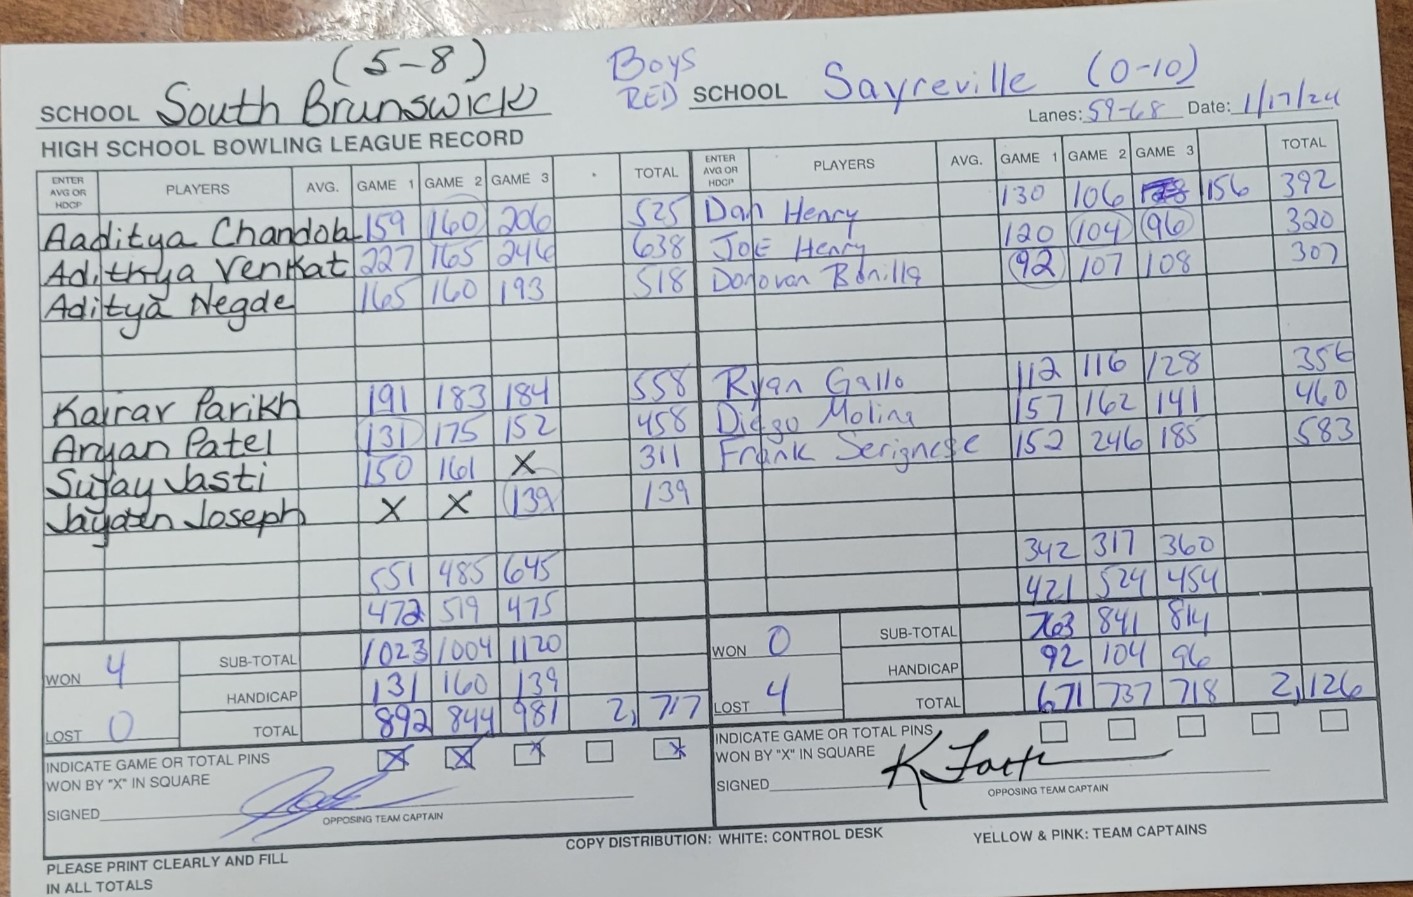 (5-8) Boys
SCHOOL South Brunswick RED SCHOOL Sayreville (0-10)
HIGH SCHOOL BOWLING LEAGUE RECORD Lanes: 59-68 Date: 1/17/24
ENTER AVG OR HDCP PLAYERS AVG. GAME 1 GAME 2 GAME 3 TOTAL ENTER AVG OR HDCP PLAYERS AVG. GAME 1 GAME 2 GAME 3 TOTAL
Aaditya Chandola 159 160 206 525 Dan Henry 130 106 156 392
Adithya Venkat 227 165 246 638 Joe Henry 120 104 96 320
Aditya Negde 165 160 193 518 Donovan Bonilla 92 107 108 307
Kairav Parikh 191 183 184 558 Ryan Gallo 112 116 128 356
Aryan Patel 131 175 152 458 Diego Molina 157 162 141 460
Sujay Jasti 150 161 X 311 Frank Serignese 152 246 185 583
Jayden Joseph X X 139 139
551 485 645 342 317 360
472 519 475 421 524 454
WON 4 SUB-TOTAL 1023 1004 1120 WON 0 SUB-TOTAL 763 841 814
HANDICAP 131 160 139 HANDICAP 92 104 96
LOST 0 TOTAL 892 844 981 2,717 LOST 4 TOTAL 671 737 718 2,126
INDICATE GAME OR TOTAL PINS X X X X INDICATE GAME OR TOTAL PINS
WON BY "X" IN SQUARE WON BY "X" IN SQUARE
SIGNED SIGNED
OPPOSING TEAM CAPTAIN OPPOSING TEAM CAPTAIN
PLEASE PRINT CLEARLY AND FILL COPY DISTRIBUTION: WHITE: CONTROL DESK YELLOW & PINK: TEAM CAPTAINS
IN ALL TOTALS